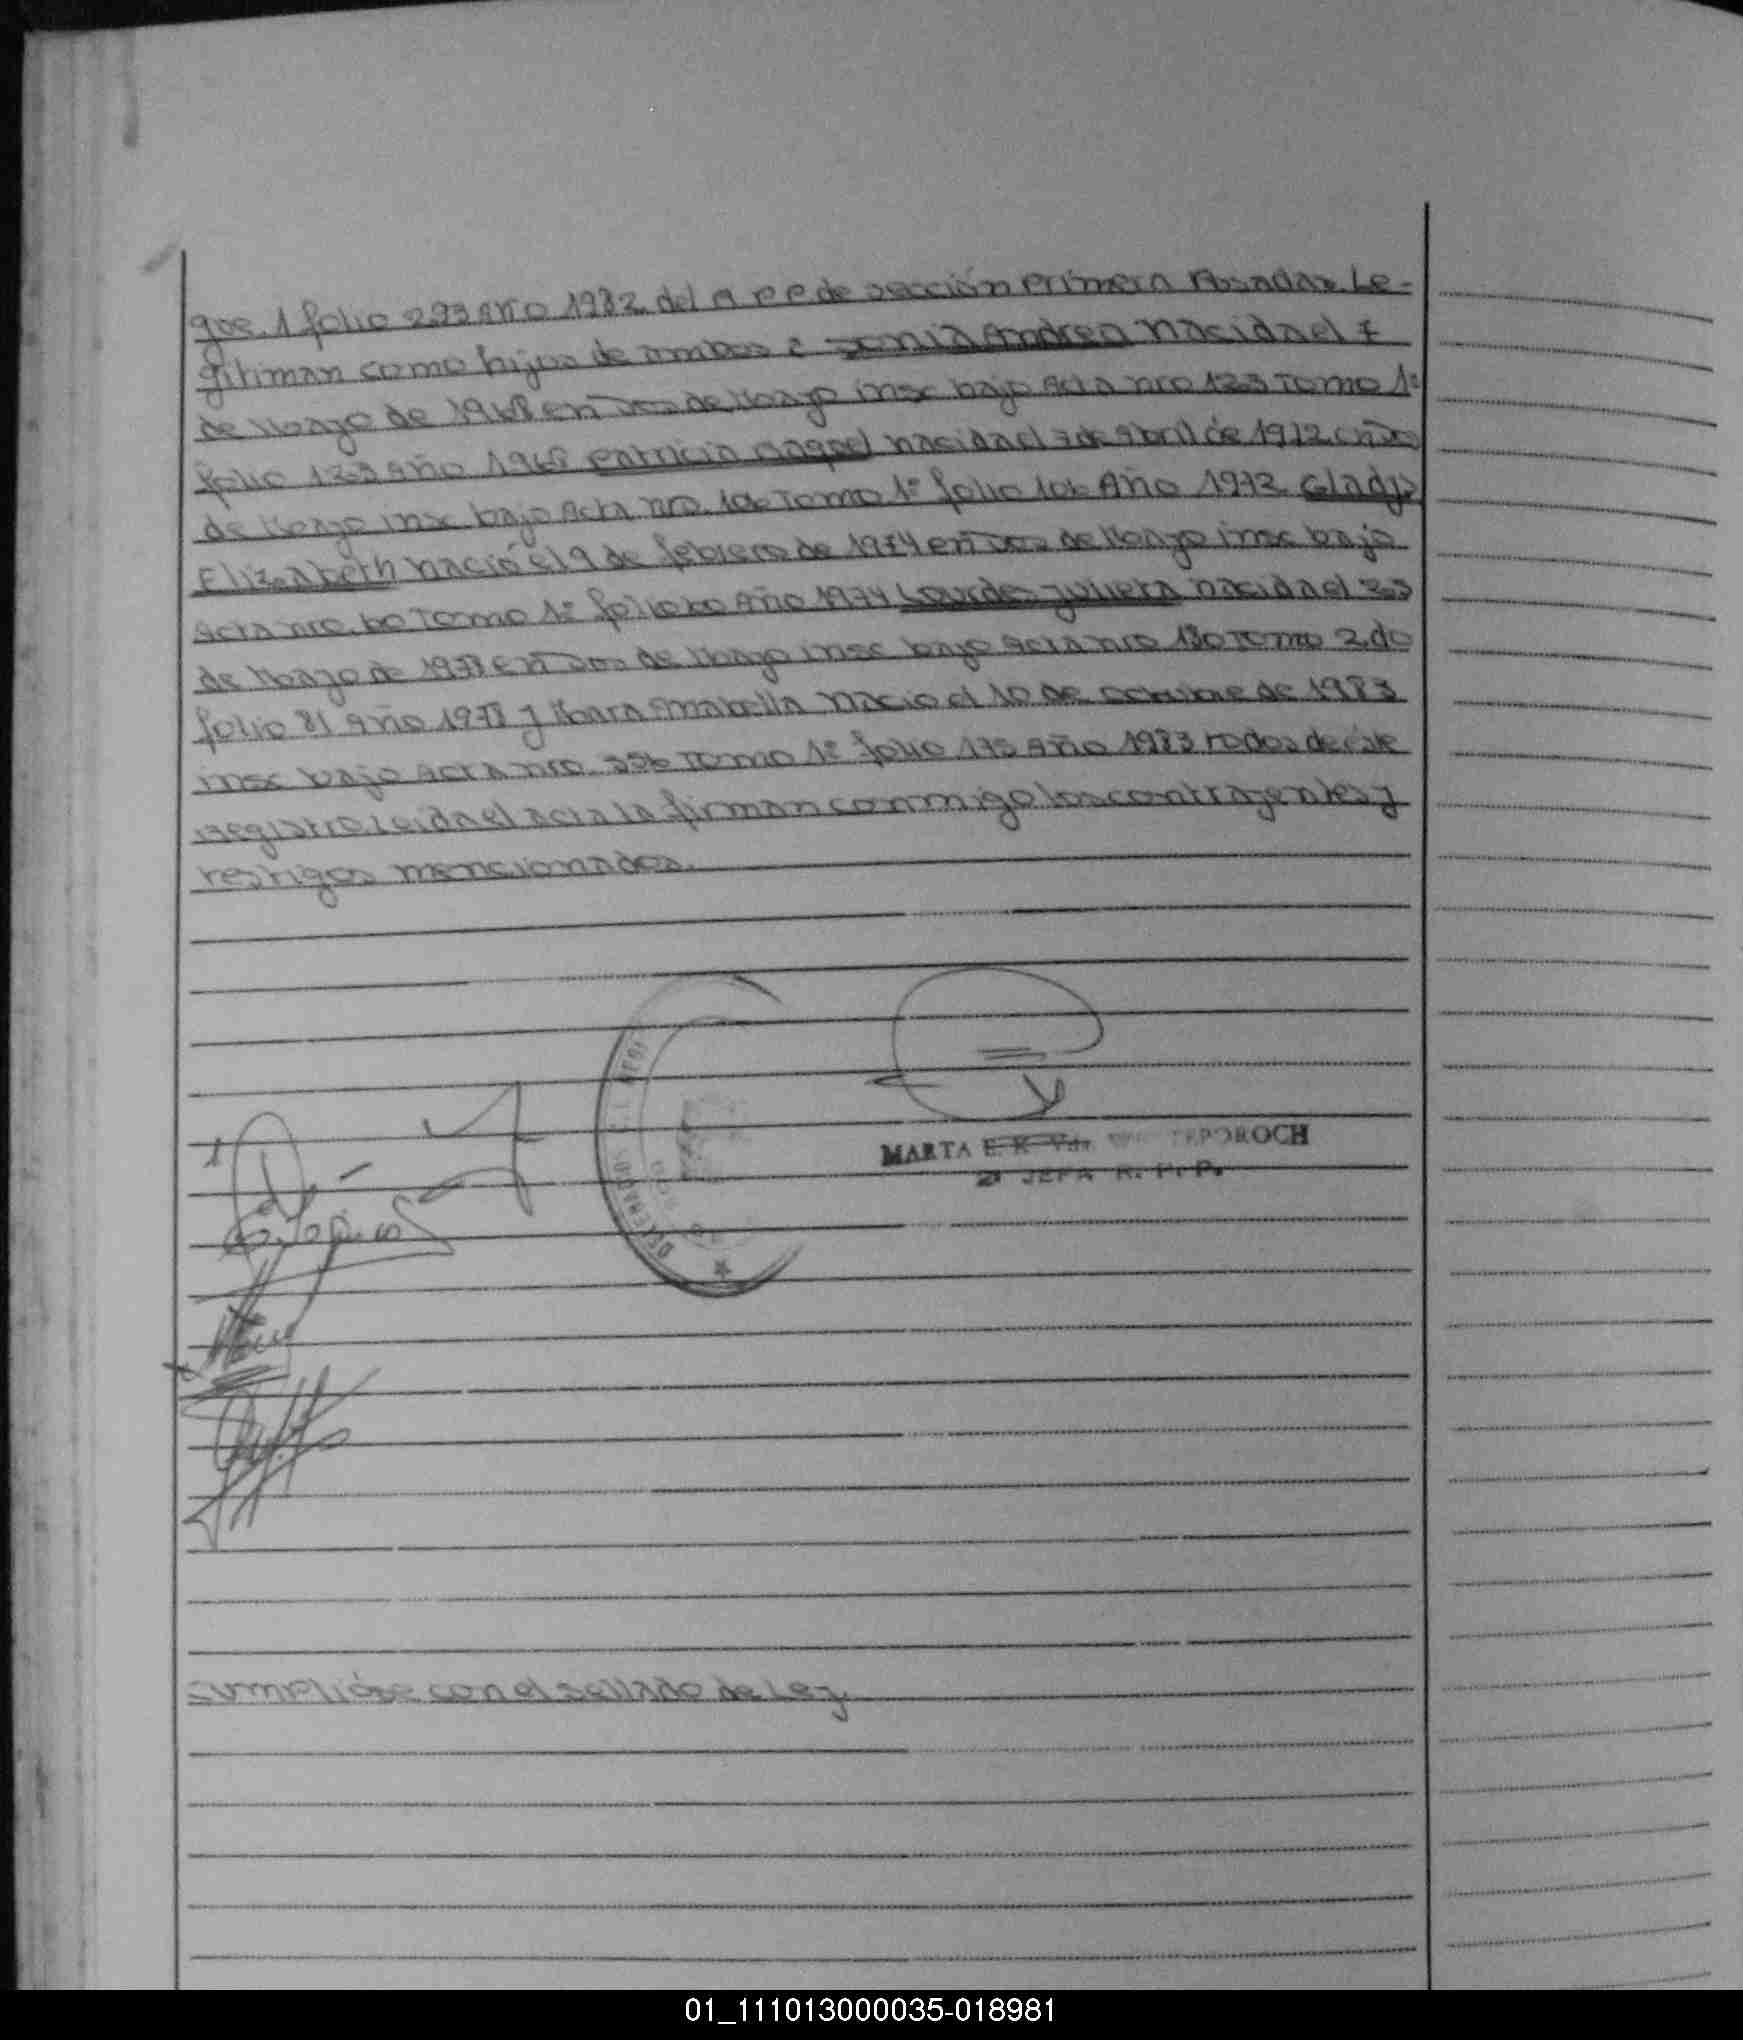 que 1 folio 293 año 1982 del R P P de sección Primera Posadas. Le-
gitiman como hijos de ambos a Sonia Andrea nacida el 7
de Mayo de 1968 en Dos de Mayo insc bajo Acta nro 123 Tomo 1º
folio 123 Año 1968 Patricia Raquel nacida el 7 de Abril de 1972 en Dos
de Mayo insc bajo Acta nro. 106 Tomo 1º folio 106 Año 1972 Gladys
Elizabeth nació el 9 de febrero de 1974 en Dos de Mayo insc bajo
Acta nro. 60 Tomo 1º folio 60 Año 1974 Lourdes Julieta nacida el
de Mayo de 1978 en Dos de Mayo insc bajo Acta nro 180 Tomo 2do
folio 81 Año 1978 y Mara Anabella nacio el 10 de octubre de 1983
insc bajo Acta nro. 356 Tomo 1º folio 175 Año 1983 todos de éste
registro. Leida el acta la firman conmigo los contrayentes y
testigos mencionados.
MARTA E. R. Vda. TEPOROCH
2ª JEFA R. P. P.
Cumplióse con el sellado de Ley.
01_111013000035-018981